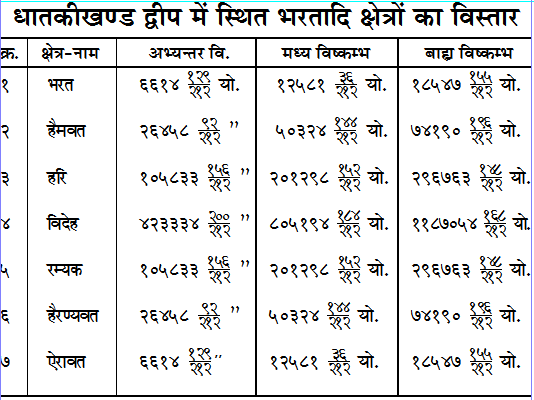 धातकीखण्ड द्वीप में स्थित भरतादि क्षेत्रों का विस्तार
क्र. क्षेत्र-नाम अभ्यन्तर वि. मध्य विष्कम्भ बाह्य विष्कम्भ
१ भरत ६६१४ १२९/२१२ यो. १२५८१ ३६/२१२ यो. १८५४७ १५५/२१२ यो.
२ हैमवत २६४५८ ९२/२१२ ” ५०३२४ १४४/२१२ यो. ७४१९० १९६/२१२ यो.
३ हरि १०५८३३ १५६/२१२ ” २०१२९८ १५२/२१२ यो. २९६७६३ १४८/२१२ यो.
४ विदेह ४२३३३४ २००/२१२ ” ८०५१९४ १८४/२१२ यो. ११८७०५४ १६८/२१२ यो.
५ रम्यक १०५८३३ १५६/२१२ ” २०१२९८ १५२/२१२ यो. २९६७६३ १४८/२१२ यो.
६ हैरण्यवत २६४५८ ९२/२१२ ” ५०३२४ १४४/२१२ यो. ७४१९० १९६/२१२ यो.
७ ऐरावत ६६१४ १२९/२१२ ” १२५८१ ३६/२१२ यो. १८५४७ १५५/२१२ यो.